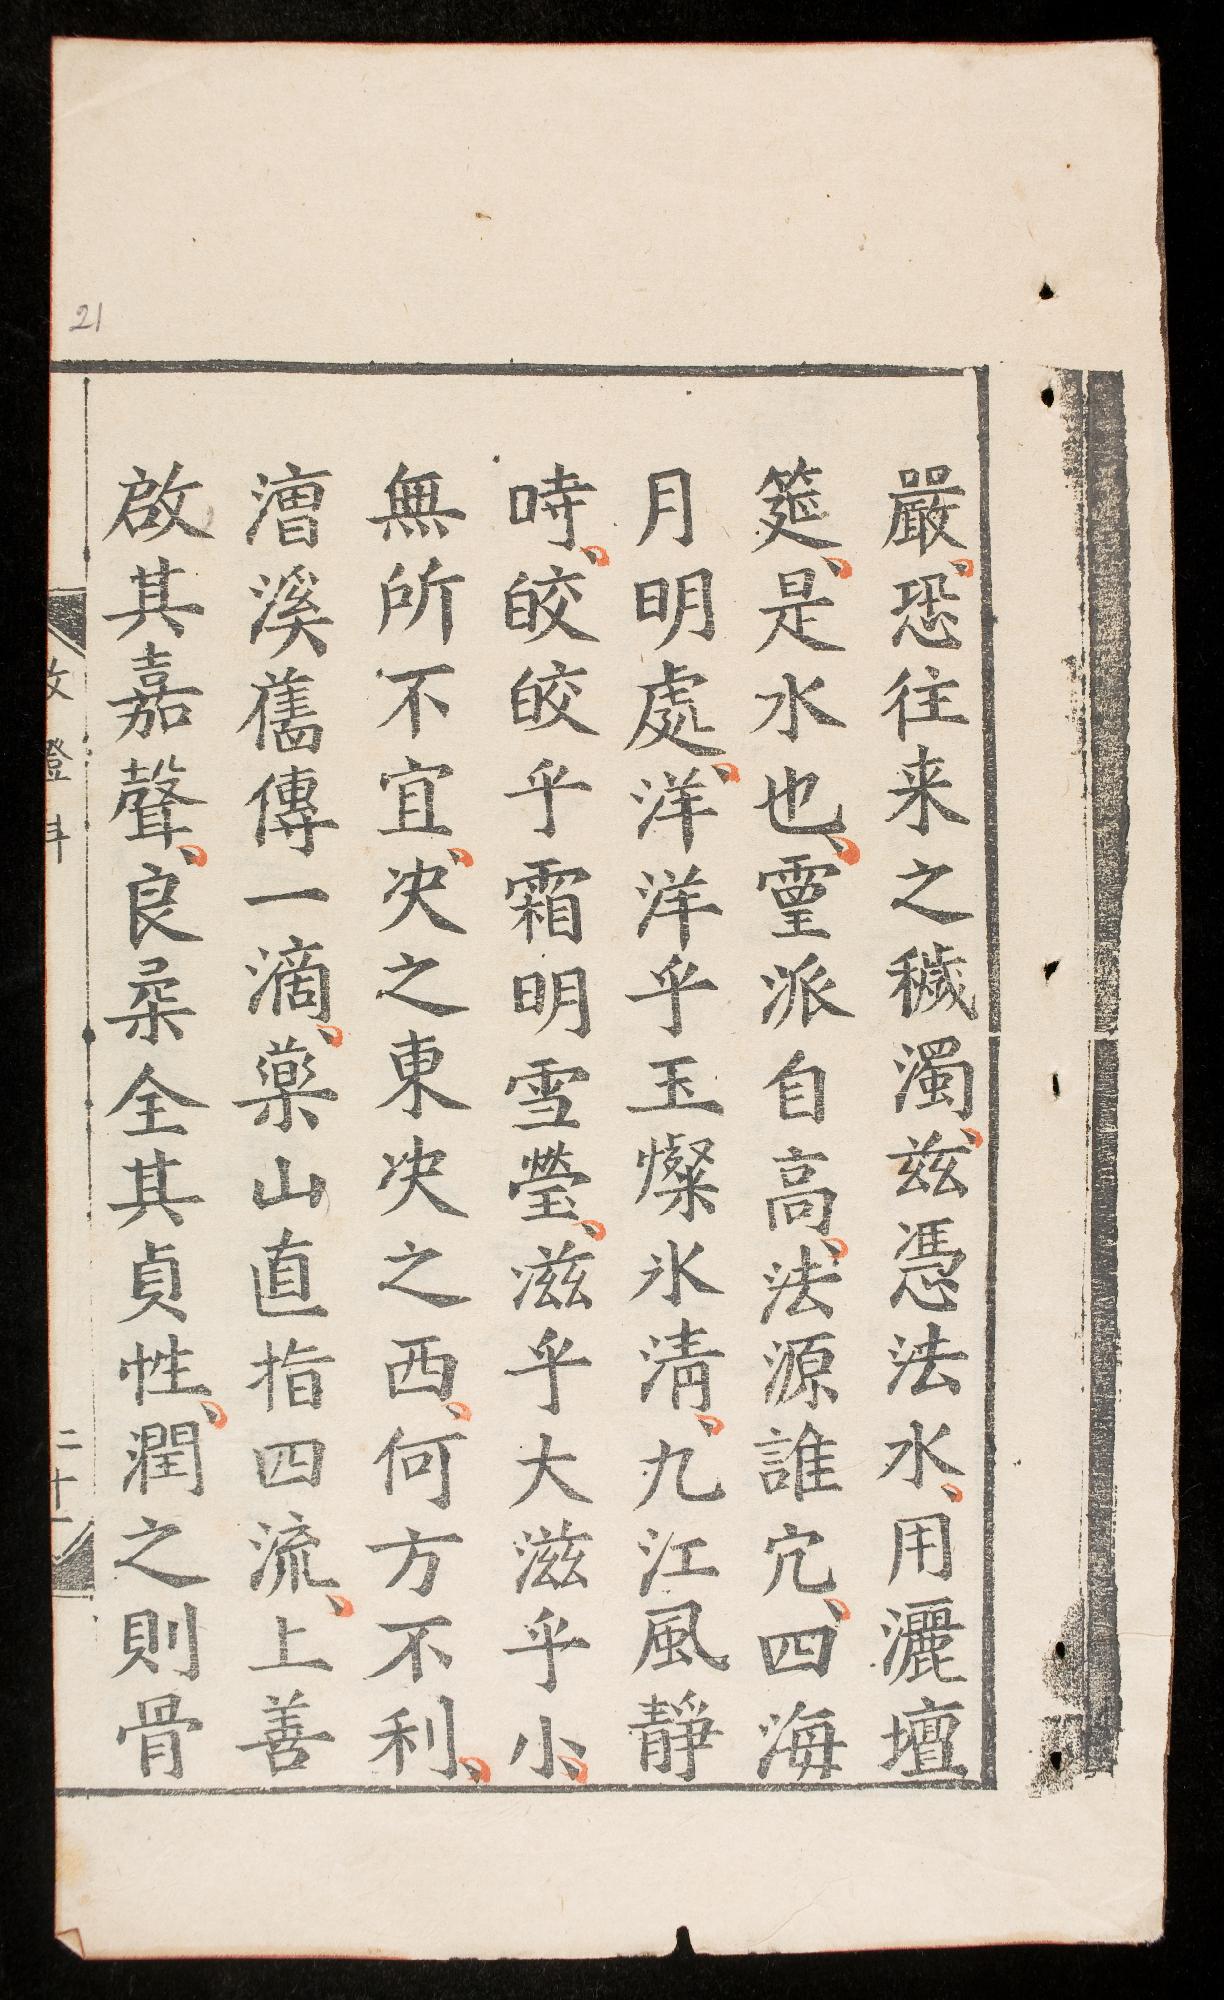 嚴、恐往来之穢濁、兹憑法水、用灑壇
筵、是水也、靈派自高、法源誰穴、四海
月明處、洋洋乎玉燦氷清、九江風靜
時、皎皎乎霜明雪瑩、滋乎大滋乎小、
無所不宜、决之東决之西、何方不利、
漕溪舊傳一滴、藥山直指四流、上善
啟其嘉聲、良柔全其貞性、潤之則骨
二十一
21